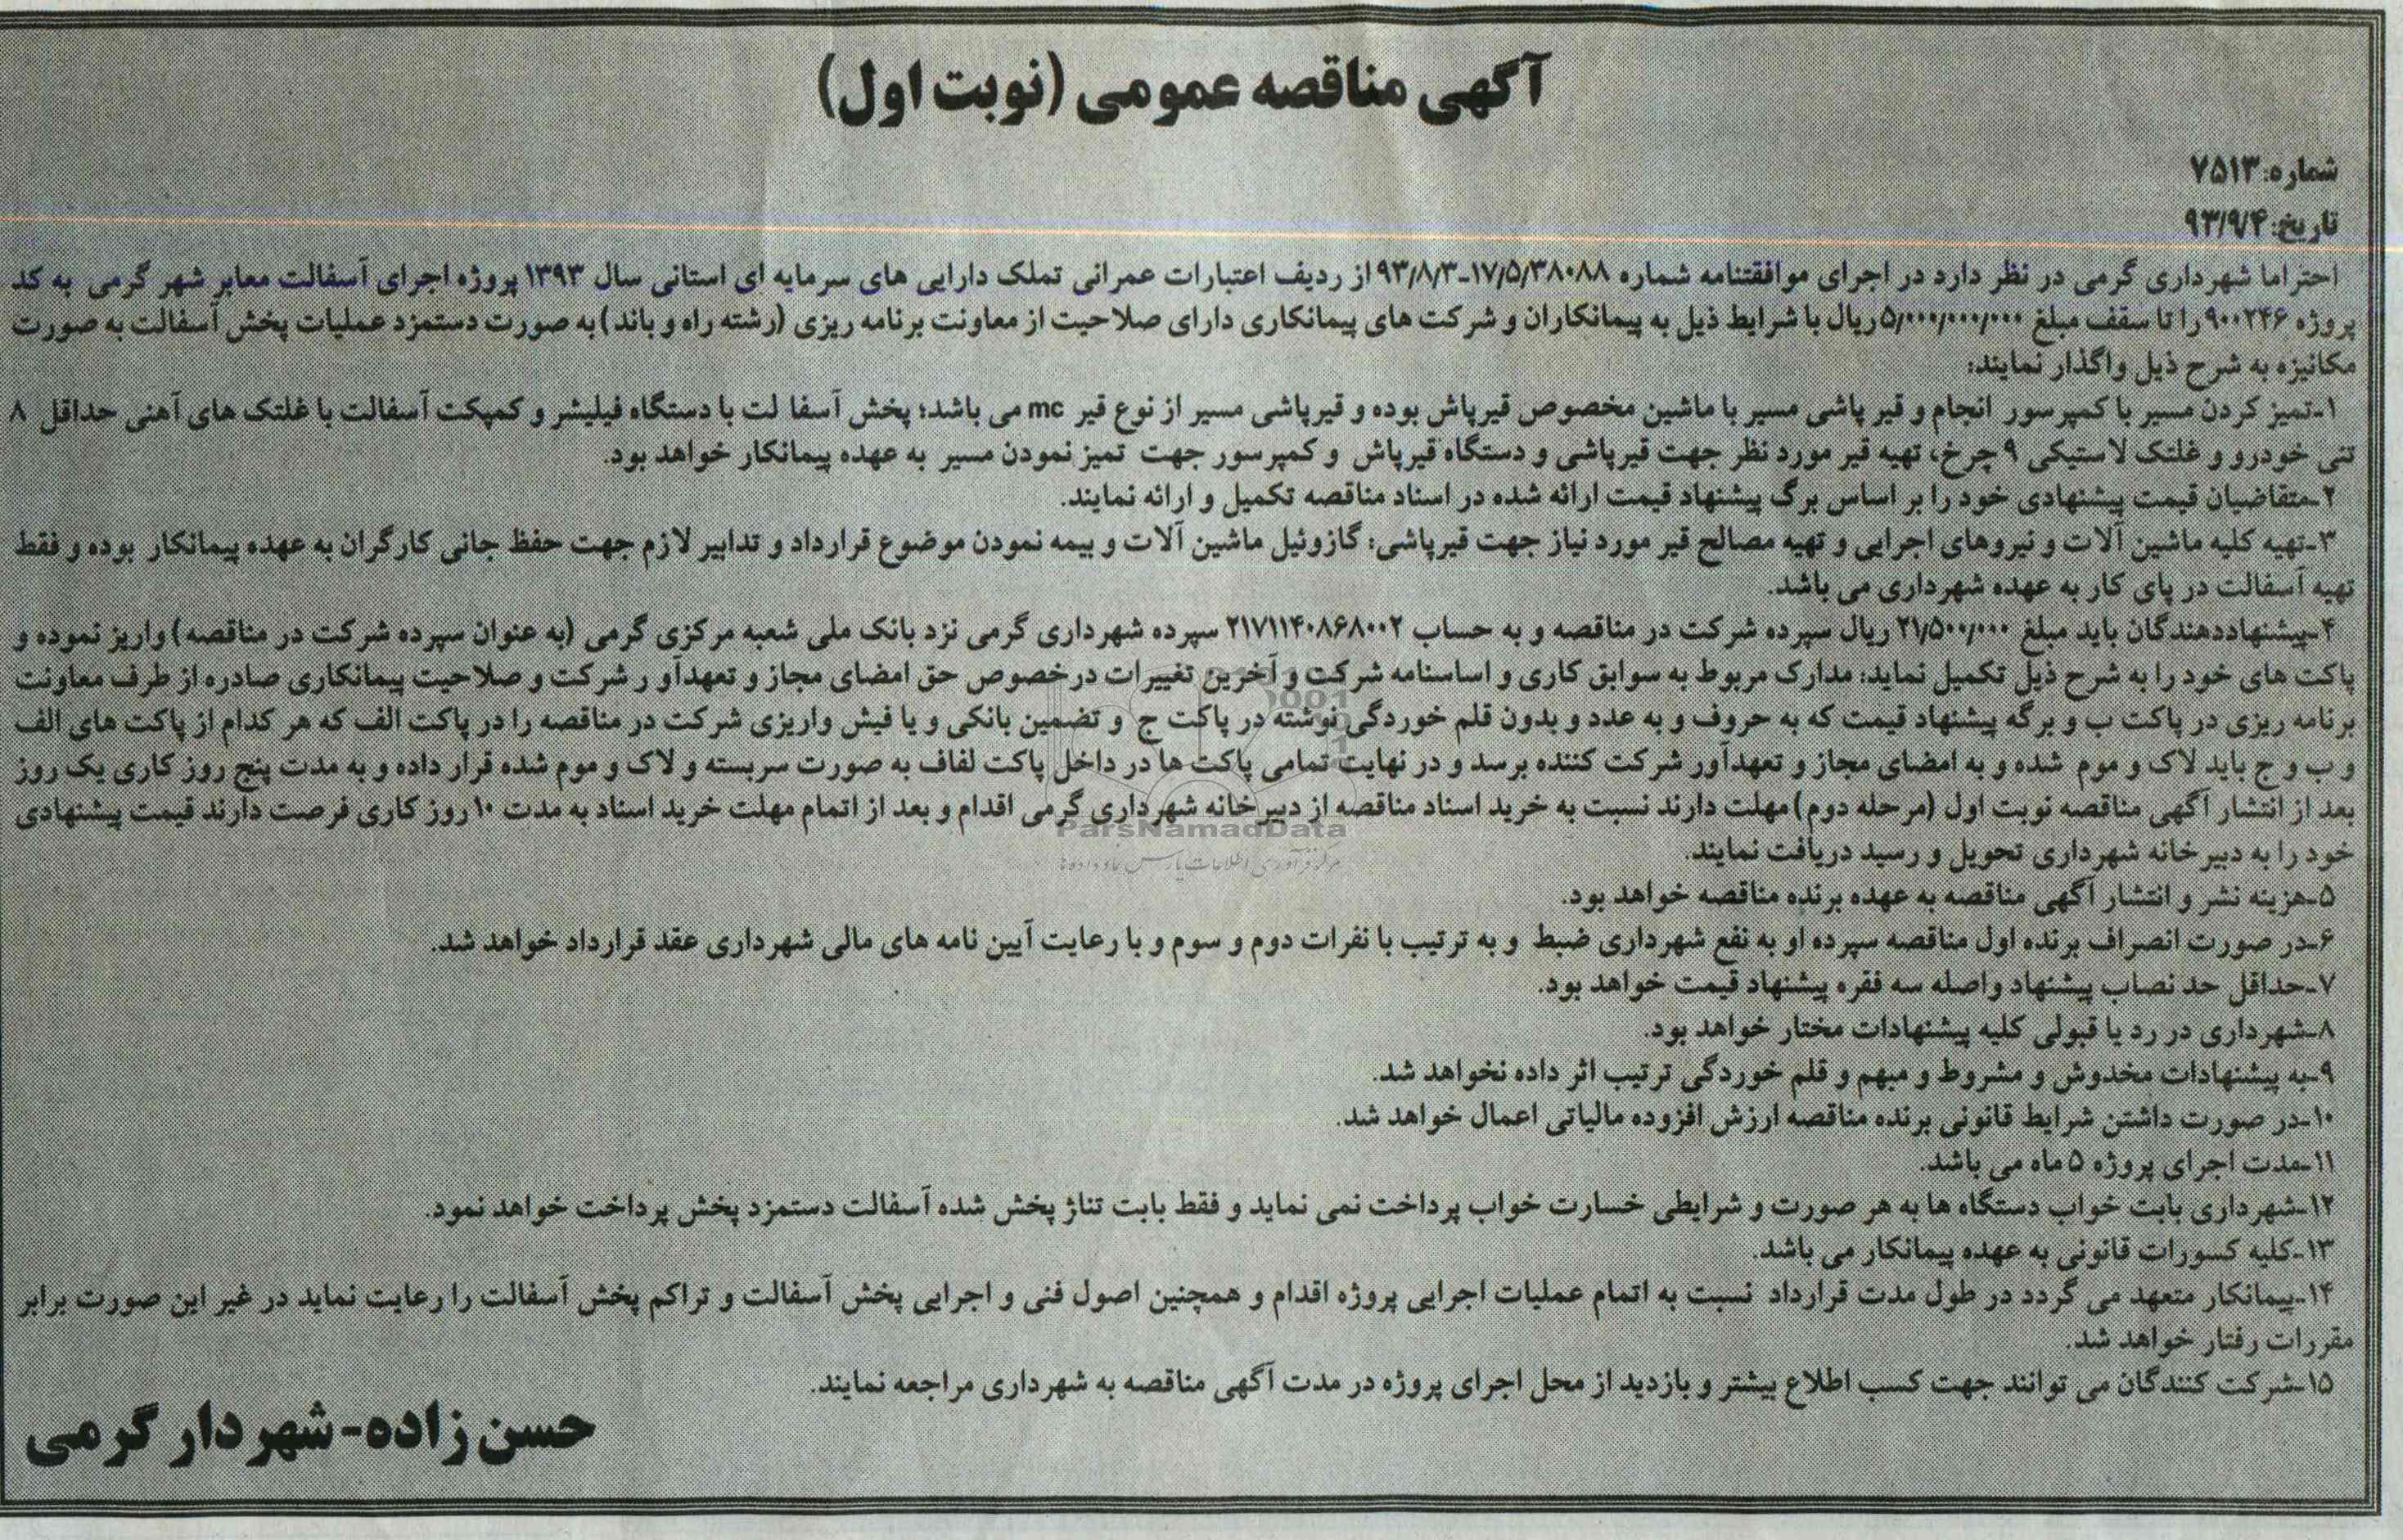 آگهی مناقصه عمومی (نوبت اول)
شماره: ۷۵۱۳
تاریخ: ۹۳/۹/۴
احتراما شهرداری گرمی در نظر دارد در اجرای موافقتنامه شماره ۱۷/۵/۳۸۰۸۸-۹۳/۸/۳ از ردیف اعتبارات عمرانی تملک دارایی های سرمایه ای استانی سال ۱۳۹۳ پروژه اجرای آسفالت معابر شهر گرمی به کد
پروژه ۹۰۰۲۴۶ را تا سقف مبلغ ۵/۰۰۰/۰۰۰/۰۰۰ ریال با شرایط ذیل به پیمانکاران و شرکت های پیمانکاری دارای صلاحیت از معاونت برنامه ریزی (رشته راه و باند) به صورت دستمزد عملیات پخش آسفالت به صورت
مکانیزه به شرح ذیل واگذار نمایند:
۱-تمیز کردن مسیر با کمپرسور انجام و قیر پاشی مسیر با ماشین مخصوص قیرپاش بوده و قیرپاشی مسیر از نوع قیر mc می باشد؛ پخش آسفا لت با دستگاه فیلیشر و کمپکت آسفالت با غلتک های آهنی حداقل ۸
تنی خودرو و غلتک لاستیکی ۹ چرخ، تهیه قیر مورد نظر جهت قیرپاشی و دستگاه قیرپاش و کمپرسور جهت تمیز نمودن مسیر به عهده پیمانکار خواهد بود.
۲-متقاضیان قیمت پیشنهادی خود را بر اساس برگ پیشنهاد قیمت ارائه شده در اسناد مناقصه تکمیل و ارائه نمایند.
۳-تهیه کلیه ماشین آلات و نیروهای اجرایی و تهیه مصالح قیر مورد نیاز جهت قیرپاشی؛ گازوئیل ماشین آلات و بیمه نمودن موضوع قرارداد و تدابیر لازم جهت حفظ جانی کارگران به عهده پیمانکار بوده و فقط
تهیه آسفالت در پای کار به عهده شهرداری می باشد.
۴-پیشنهاددهندگان باید مبلغ ۲۱/۵۰۰/۰۰۰ ریال سپرده شرکت در مناقصه و به حساب ۲۱۷۱۱۴۰۸۶۸۰۰۲ سپرده شهرداری گرمی نزد بانک ملی شعبه مرکزی گرمی (به عنوان سپرده شرکت در مناقصه) واریز نموده و
پاکت های خود را به شرح ذیل تکمیل نماید: مدارک مربوط به سوابق کاری و اساسنامه شرکت و آخرین تغییرات درخصوص حق امضای مجاز و تعهدآو ر شرکت و صلاحیت پیمانکاری صادره از طرف معاونت
برنامه ریزی در پاکت ب و برگه پیشنهاد قیمت که به حروف و به عدد و بدون قلم خوردگی نوشته در پاکت ج و تضمین بانکی و یا فیش واریزی شرکت در مناقصه را در پاکت الف که هر کدام از پاکت های الف
و ب و ج باید لاک و موم شده و به امضای مجاز و تعهدآور شرکت کننده برسد و در نهایت تمامی پاکت ها در داخل پاکت لفاف به صورت سربسته و لاک و موم شده قرار داده و به مدت پنج روز کاری یک روز
بعد از انتشار آگهی مناقصه نوبت اول (مرحله دوم) مهلت دارند نسبت به خرید اسناد مناقصه از دبیرخانه شهرداری گرمی اقدام و بعد از اتمام مهلت خرید اسناد به مدت ۱۰ روز کاری فرصت دارند قیمت پیشنهادی
ParsNamadData
خود را به دبیرخانه شهرداری تحویل و رسید دریافت نمایند.
مرکز فرآوری اطلاعات پارس نماد داده ها
۵-هزینه نشر و انتشار آگهی مناقصه به عهده برنده مناقصه خواهد بود.
۶-در صورت انصراف برنده اول مناقصه سپرده او به نفع شهرداری ضبط و به ترتیب با نفرات دوم و سوم و با رعایت آیین نامه های مالی شهرداری عقد قرارداد خواهد شد.
۷-حداقل حد نصاب پیشنهاد واصله سه فقره پیشنهاد قیمت خواهد بود.
۸-شهرداری در رد یا قبولی کلیه پیشنهادات مختار خواهد بود.
۹-به پیشنهادات مخدوش و مشروط و مبهم و قلم خوردگی ترتیب اثر داده نخواهد شد.
۱۰-در صورت داشتن شرایط قانونی برنده مناقصه ارزش افزوده مالیاتی اعمال خواهد شد.
۱۱-مدت اجرای پروژه ۵ ماه می باشد.
۱۲-شهرداری بابت خواب دستگاه ها به هر صورت و شرایطی خسارت خواب پرداخت نمی نماید و فقط بابت تناژ پخش شده آسفالت دستمزد پخش پرداخت خواهد نمود.
۱۳-کلیه کسورات قانونی به عهده پیمانکار می باشد.
۱۴-پیمانکار متعهد می گردد در طول مدت قرارداد نسبت به اتمام عملیات اجرایی پروژه اقدام و همچنین اصول فنی و اجرایی پخش آسفالت و تراکم پخش آسفالت را رعایت نماید در غیر این صورت برابر
مقررات رفتار خواهد شد.
۱۵-شرکت کنندگان می توانند جهت کسب اطلاع بیشتر و بازدید از محل اجرای پروژه در مدت آگهی مناقصه به شهرداری مراجعه نمایند.
حسن زاده-شهردار گرمی